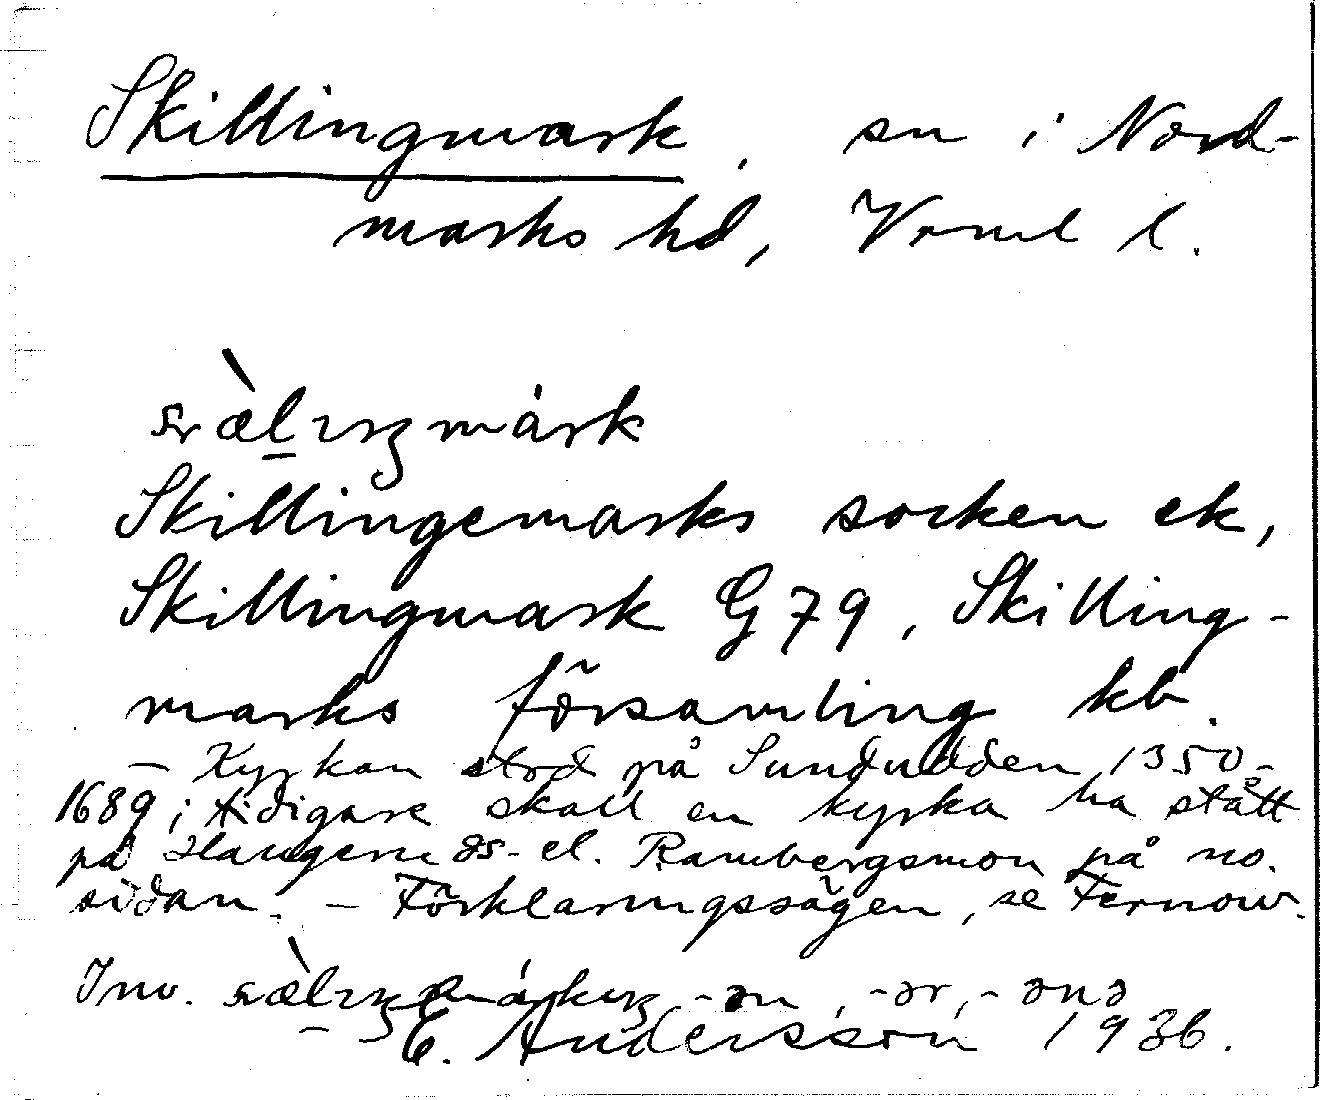 Skillingmark, sn i Nord-
marks hd, Vrml l.
Skillingemarks socken ek,
Skillingmark G 79, Skilling-
marks församling kb.
– Kyrkan stod på Sundudden 1350-
1689; tidigare skall en kyrka ha stått
på ds- el. Rambergsmon på no.
sidan. – Förklaringssägen, se Fernow.
Inv. -ən, -ər, -ənə
E. Andersson 1936.